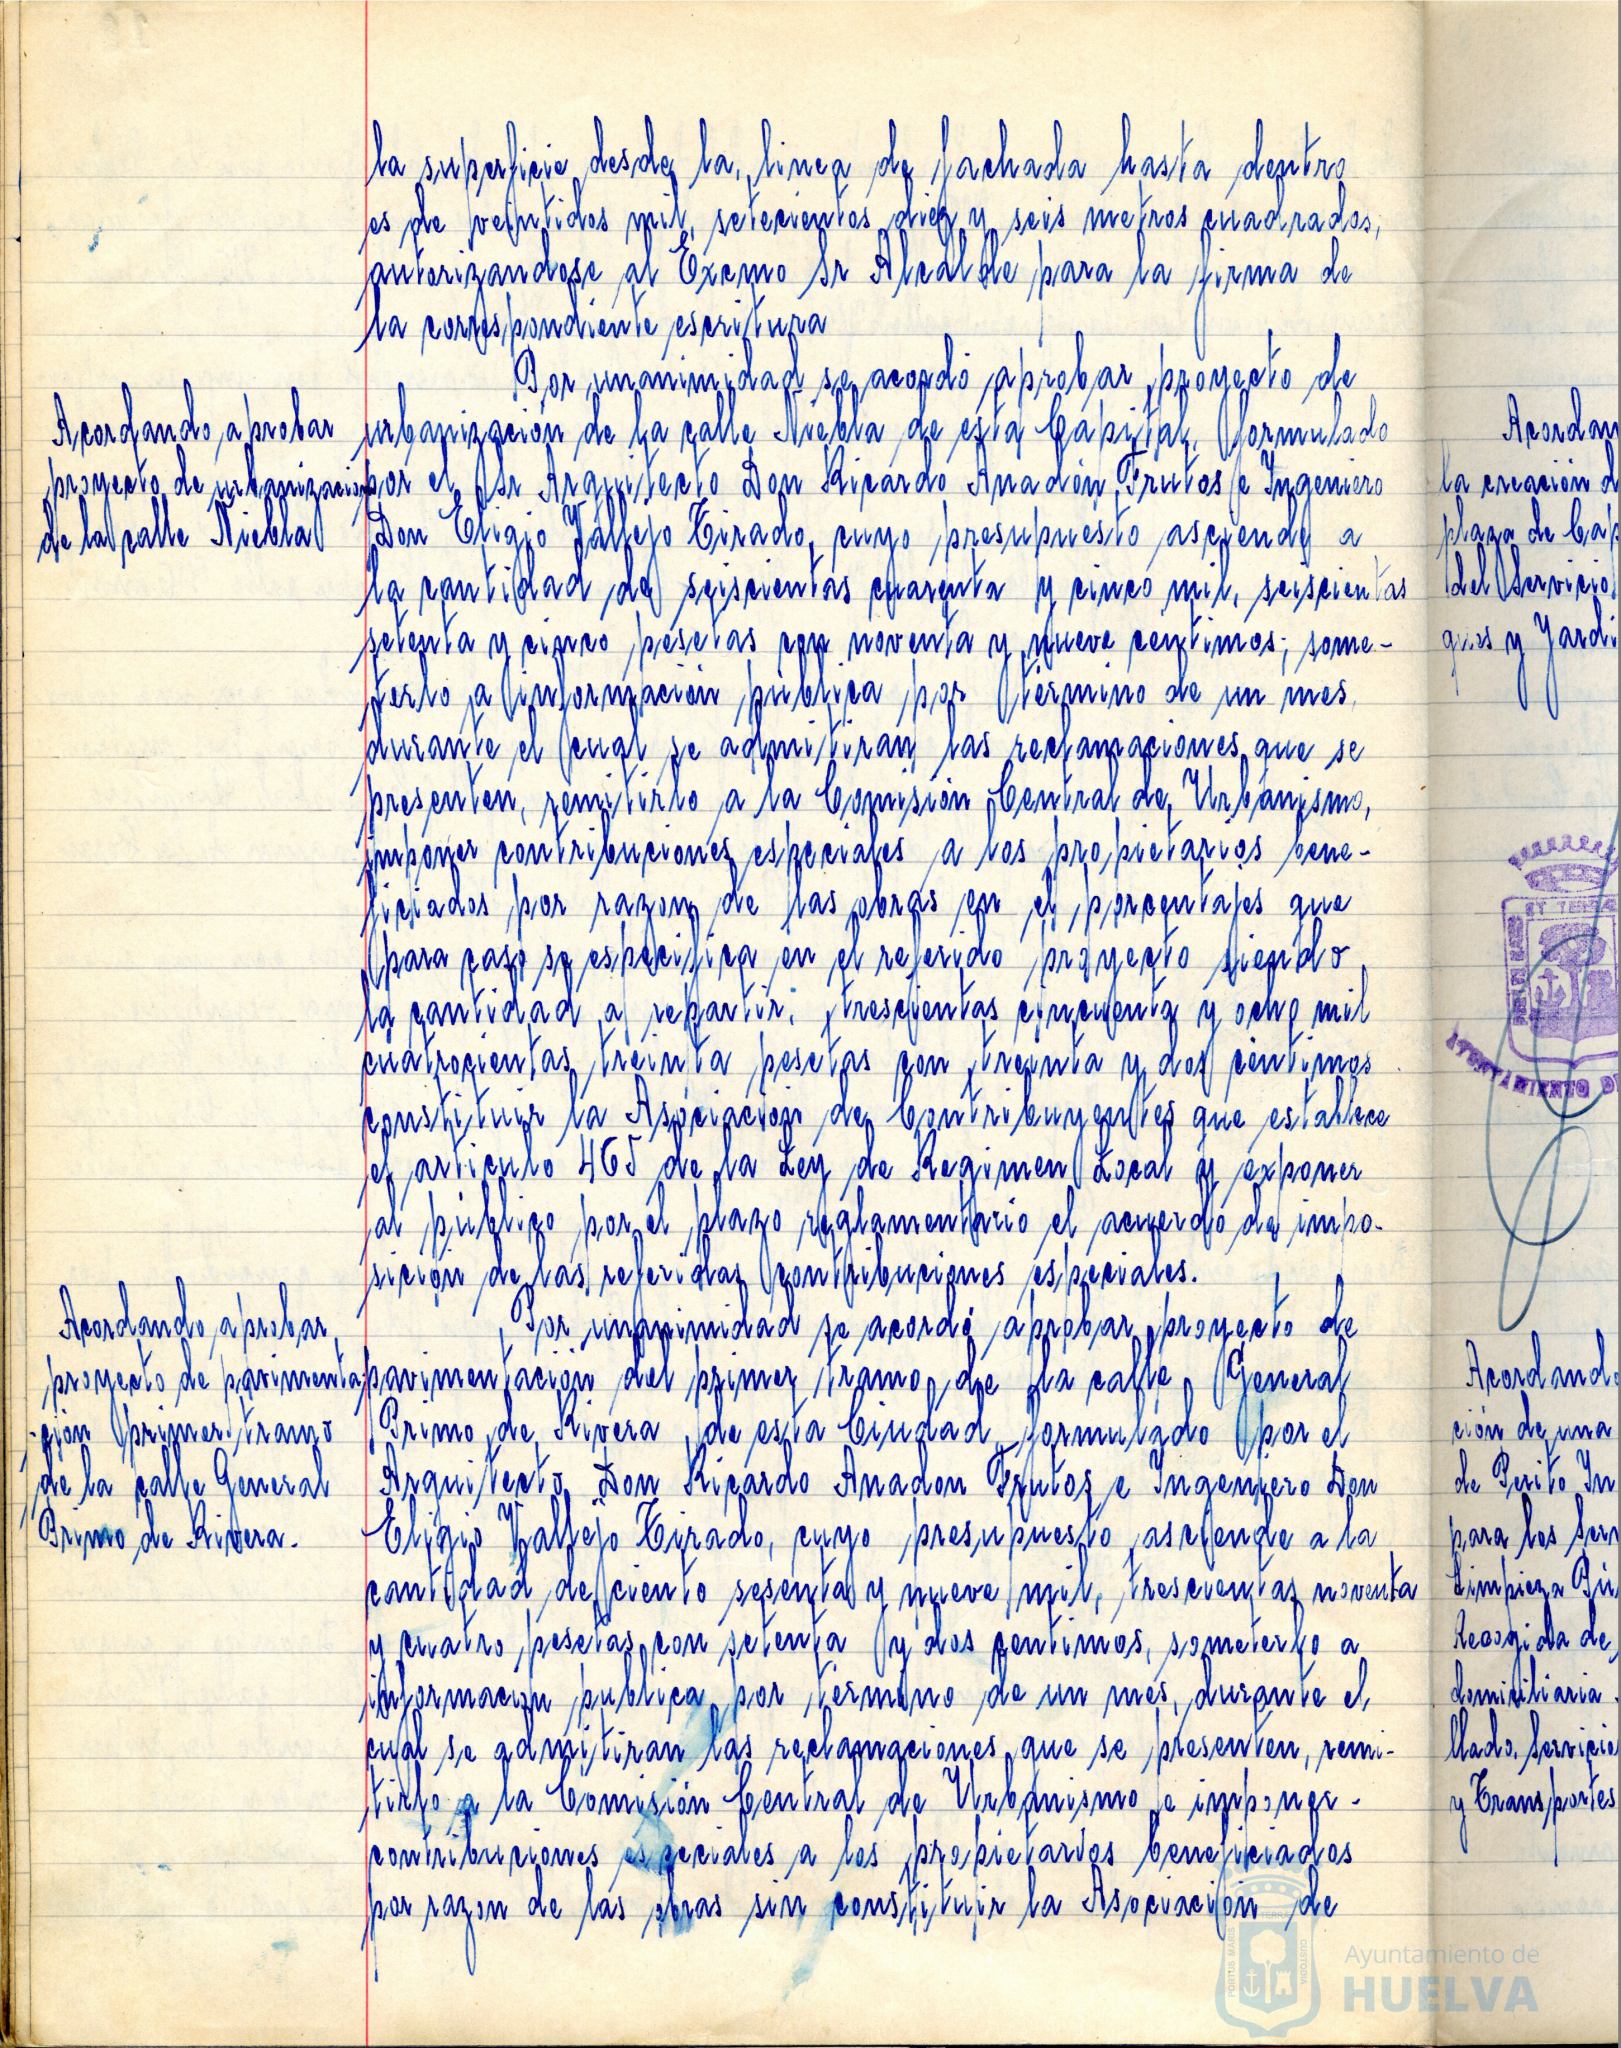 la superficie desde la, linea de fachada hasta dentro
es de veintidos mil, setecientos diez y seis metros cuadrados,
autorizandose al Excmo Sr Alcalde para la firma de
la correspondiente escritura
Acordando aprobar
proyecto de urbanizacion
de la calle Niebla
Por unanimidad se acordó aprobar proyecto de
urbanización de la calle Niebla de esta Capital, formulado
por el Sr Arquitecto Don Ricardo Anadón Frutos e Ingeniero
Don Eligio Vallejo Tirado, cuyo presupuesto asciende a
la cantidad de seiscientas cuarenta y cinco mil, seiscientas
setenta y cinco pesetas con noventa y nueve centimos; some-
terlo a información pública por término de un mes,
durante el cual se admitiran las reclamaciones que se
presenten, remitirlo a la Comisión Central de Urbanismo,
imponer contribuciones especiales a los propietarios bene-
ficiados por razon de las obras en el porcentajes que
para caso se especifica en el referido proyecto siendo
la cantidad a repartir, trescientas cincuenta y ocho mil
cuatrocientas treinta pesetas con treinta y dos centimos
constituir la Asociación de Contribuyentes que establece
el articulo 465 de la Ley de Regimen Local y exponer
al público por el plazo reglamentario el acuerdo de impo-
sición de las referidas contribuciones especiales.
Acordando aprobar
proyecto de pavimenta
-ción primer tramo
de la calle General
Primo de Rivera.
Por unanimidad se acordó aprobar proyecto de
pavimentación del primer tramo de la calle General
Primo de Rivera de esta Ciudad formulado por el
Arquitecto Don Ricardo Anadon Frutos e Ingeniero Don
Eligio Vallejo Tirado, cuyo presupuesto asciende a la
cantidad de ciento sesenta y nueve mil, trescientas noventa
y cuatro pesetas con setenta y dos centimos, someterlo a
informacion publica por termino de un mes, durante el
cual se admitiran las reclamaciones que se presenten, remi-
tirlo a la Comisión Central de Urbanismo e imponer-
contribuciones especiales a los propietarios beneficiados
por razon de las obras sin constituir la Asociación de
Acordan
la creación d
plaza de Cap
del Servicio
ques y Jardi
AYUNTAMIENTO DE
Acordando
ción de una
de Perito In
para los Serv
Limpieza Pú
Recogida de
domiciliaria.
llado, Servicio
y Transportes
Ayuntamiento de
HUELVA